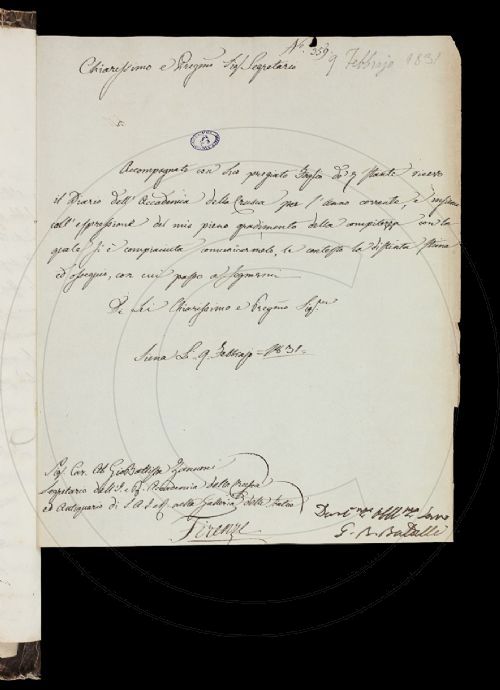 No. 359
9 Febbrajo 1831
Chiarissimo e Pregmo Sigr Segretario
Accompagnato con Suo pregiato foglio de 7 stante ricevo
il Diario dell'Accademia della Crusca per l'anno corrente, e
coll'espressione del mio pieno gradimento della compitezza con la
quale si è compiaciuta comunicarmelo, le contesto la distinta stima
ed ossequio, con cui passo a segnarmi
Di Lei Chiarissimo e Pregmo Sigre
Siena Li 9 Febbrajo 1831.
Sigr Cav. Ab. Gio Battista Zannoni
Segretario dell'I. e R. Accademia della Crusca
ed Antiquario di S. A. I. e R. nella Galleria delle Statue
Firenze
Devmo Obbmo Servo
G. B.